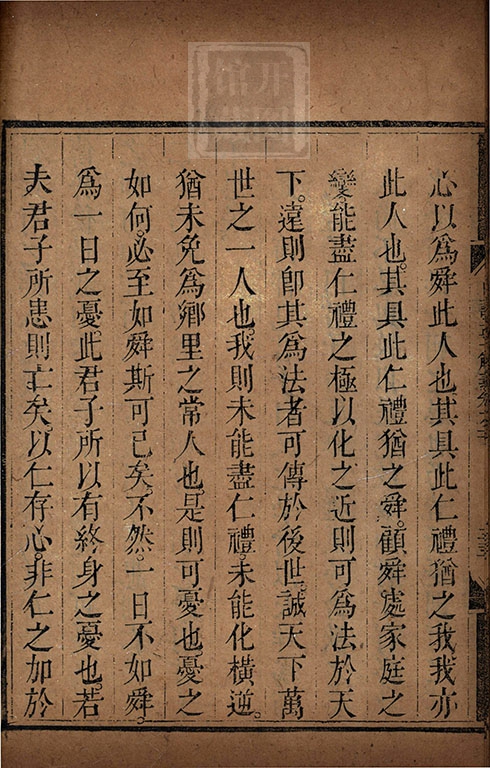 心以為舜此人也其具此仁禮猶之我我亦
此人也其具此仁禮猶之舜顧舜處家庭之
變能盡仁禮之極以化之近則可為法於天
下遠則卽其為法者可傳於後世誠天下萬
世之一人也我則未能盡仁禮未能化橫逆
猶未免為鄉里之常人也是則可憂也憂之
如何必至如舜斯可已矣不然一日不如舜
為一日之憂此君子所以有終身之憂也若
夫君子所患則亡矣以仁存心非仁之加於